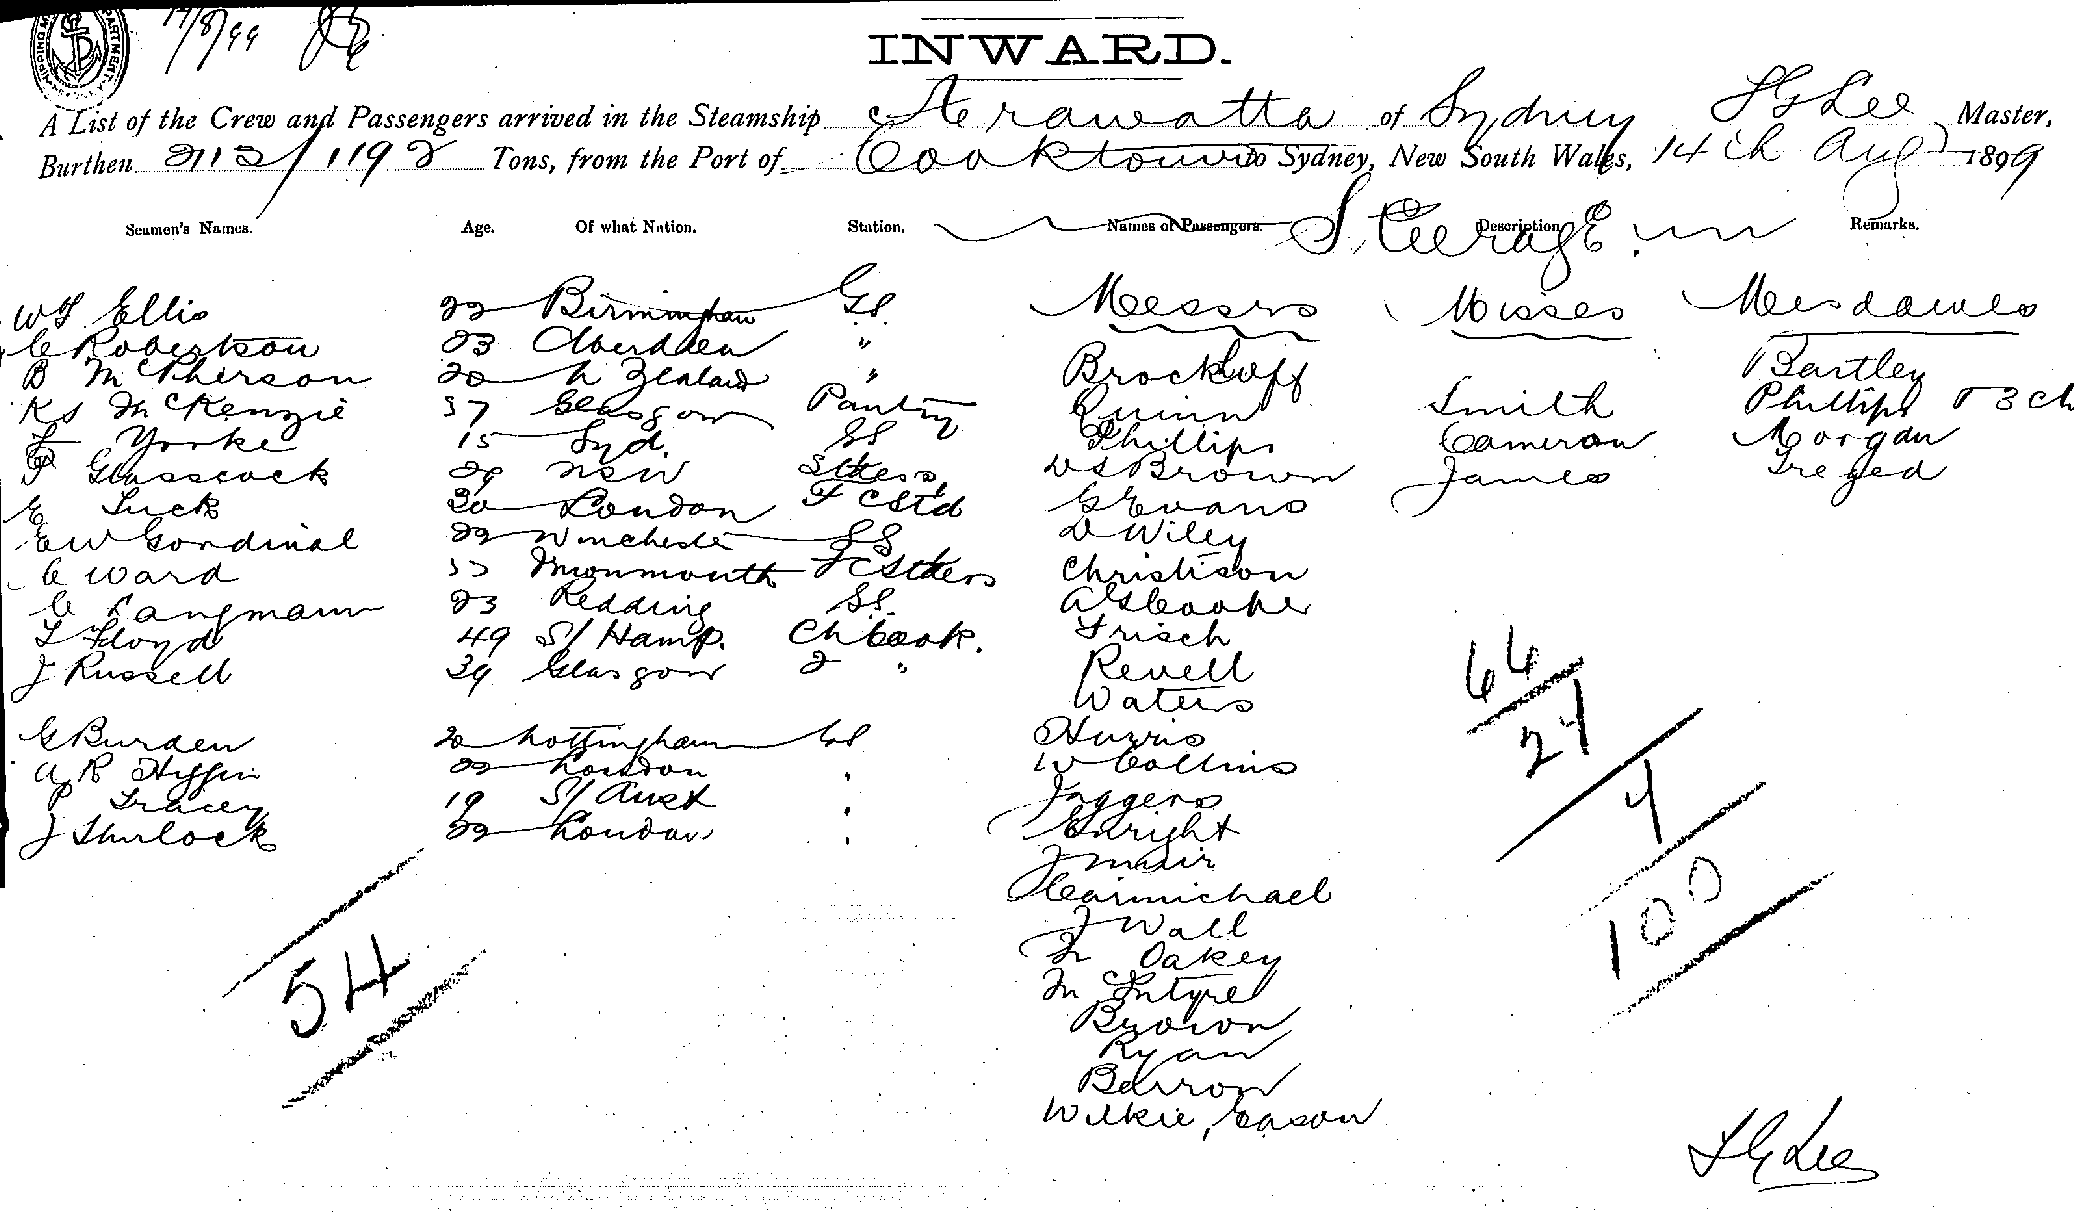 14/8/99
INWARD.
A List of the Crew and Passengers arrived in the Steamship Arawatta of Sydney Master,
Burthen 2112/1192 Tons, from the Port of Cooktown to Sydney, New South Wales, 14th Aug 1899
Seamen's Names. Age. Of what Nation. Station. Names of Passengers. Description Remarks.
Steerage.
Ellis 22 Birmingham GS Messrs Misses Mesdames
C Robertson 23 Aberdeen "
B McPherson 20 N Zealand " Brockhoff Bartley
K S McKenzie 37 Glasgow Pantry Quinn Smith Phillips & 3 ch
Yorke 15 Syd. SS Phillips Cameron Morgan
Glasscock 29 NSW Brown James
E Tuck 30 London F C Std G Evans
E W Gordinal 29 Winchester SS D Wiley
C Ward 33 Monmouth Christison
C Langmann 23 Redding SS. Cooper
Lloyd 49 S/Hamp. Ch Cook. Frisch
J Russell 39 Glasgow 2 " Revell
Waters
G Burden 20 Nottingham GS Harris
22 London W Collins
P Tracey 19 S/Aust Jaggers
J Thurlock 22 London Enright
J Muir
Carmichael
J Wall
Oakey
McIntyre
Brown
Ryan
Barron
Wilkie, Eason
54
24
4
100
Lee